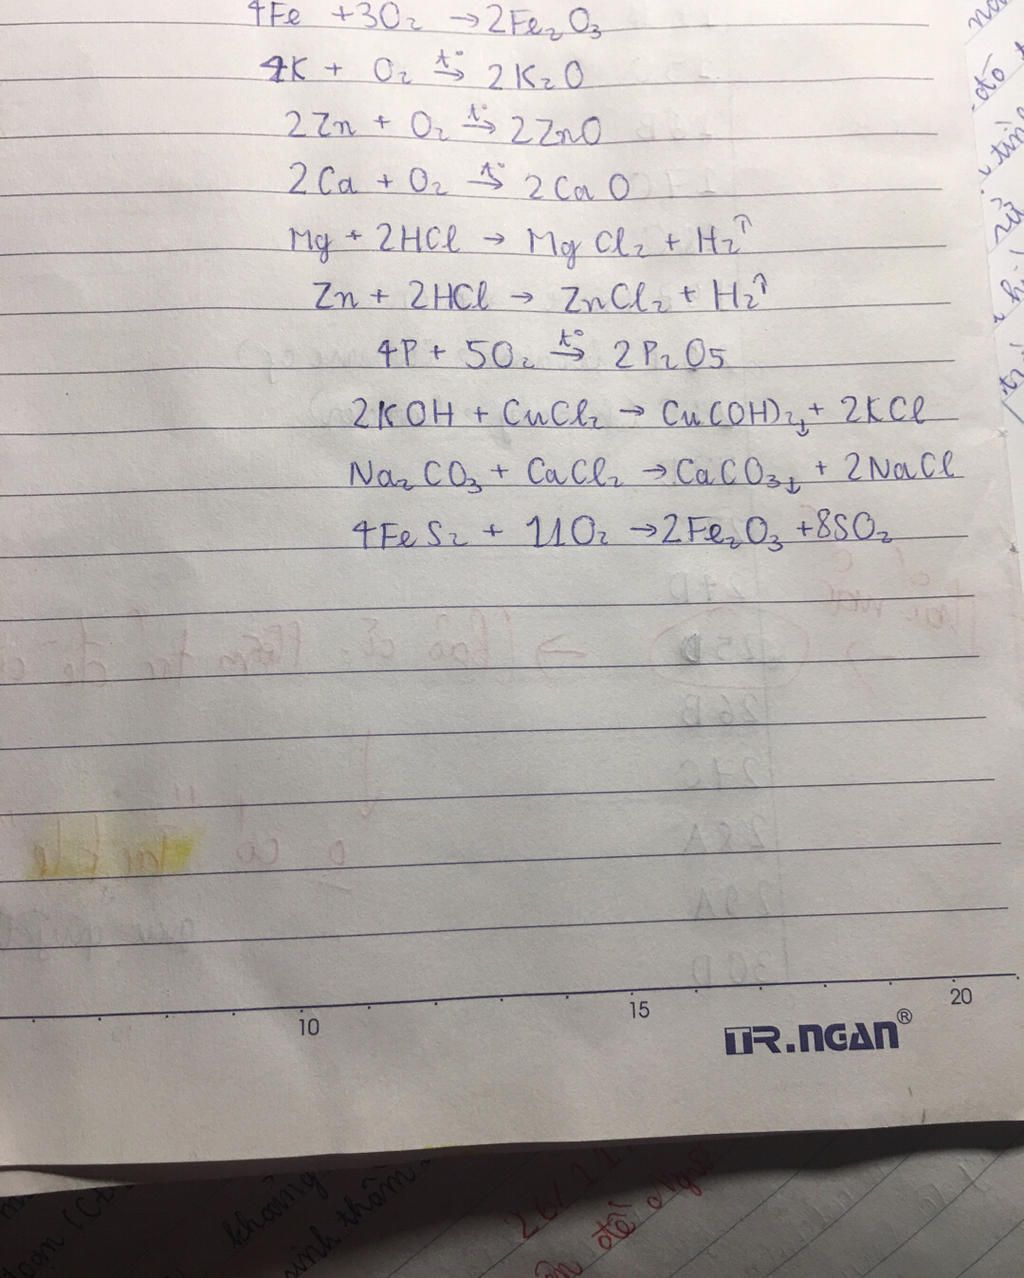 4Fe + 3O₂ → 2Fe₂O₃
4K + O₂ →(t°) 2K₂O
2Zn + O₂ →(t°) 2ZnO
2Ca + O₂ →(t°) 2CaO
Mg + 2HCl → MgCl₂ + H₂↑
Zn + 2HCl → ZnCl₂ + H₂↑
4P + 5O₂ →(t°) 2P₂O₅
2KOH + CuCl₂ → Cu(OH)₂↓ + 2KCl
Na₂CO₃ + CaCl₂ → CaCO₃↓ + 2NaCl
4FeS₂ + 11O₂ → 2Fe₂O₃ + 8SO₂
10 15 20
TR.NGAN®
khoảng
26/11